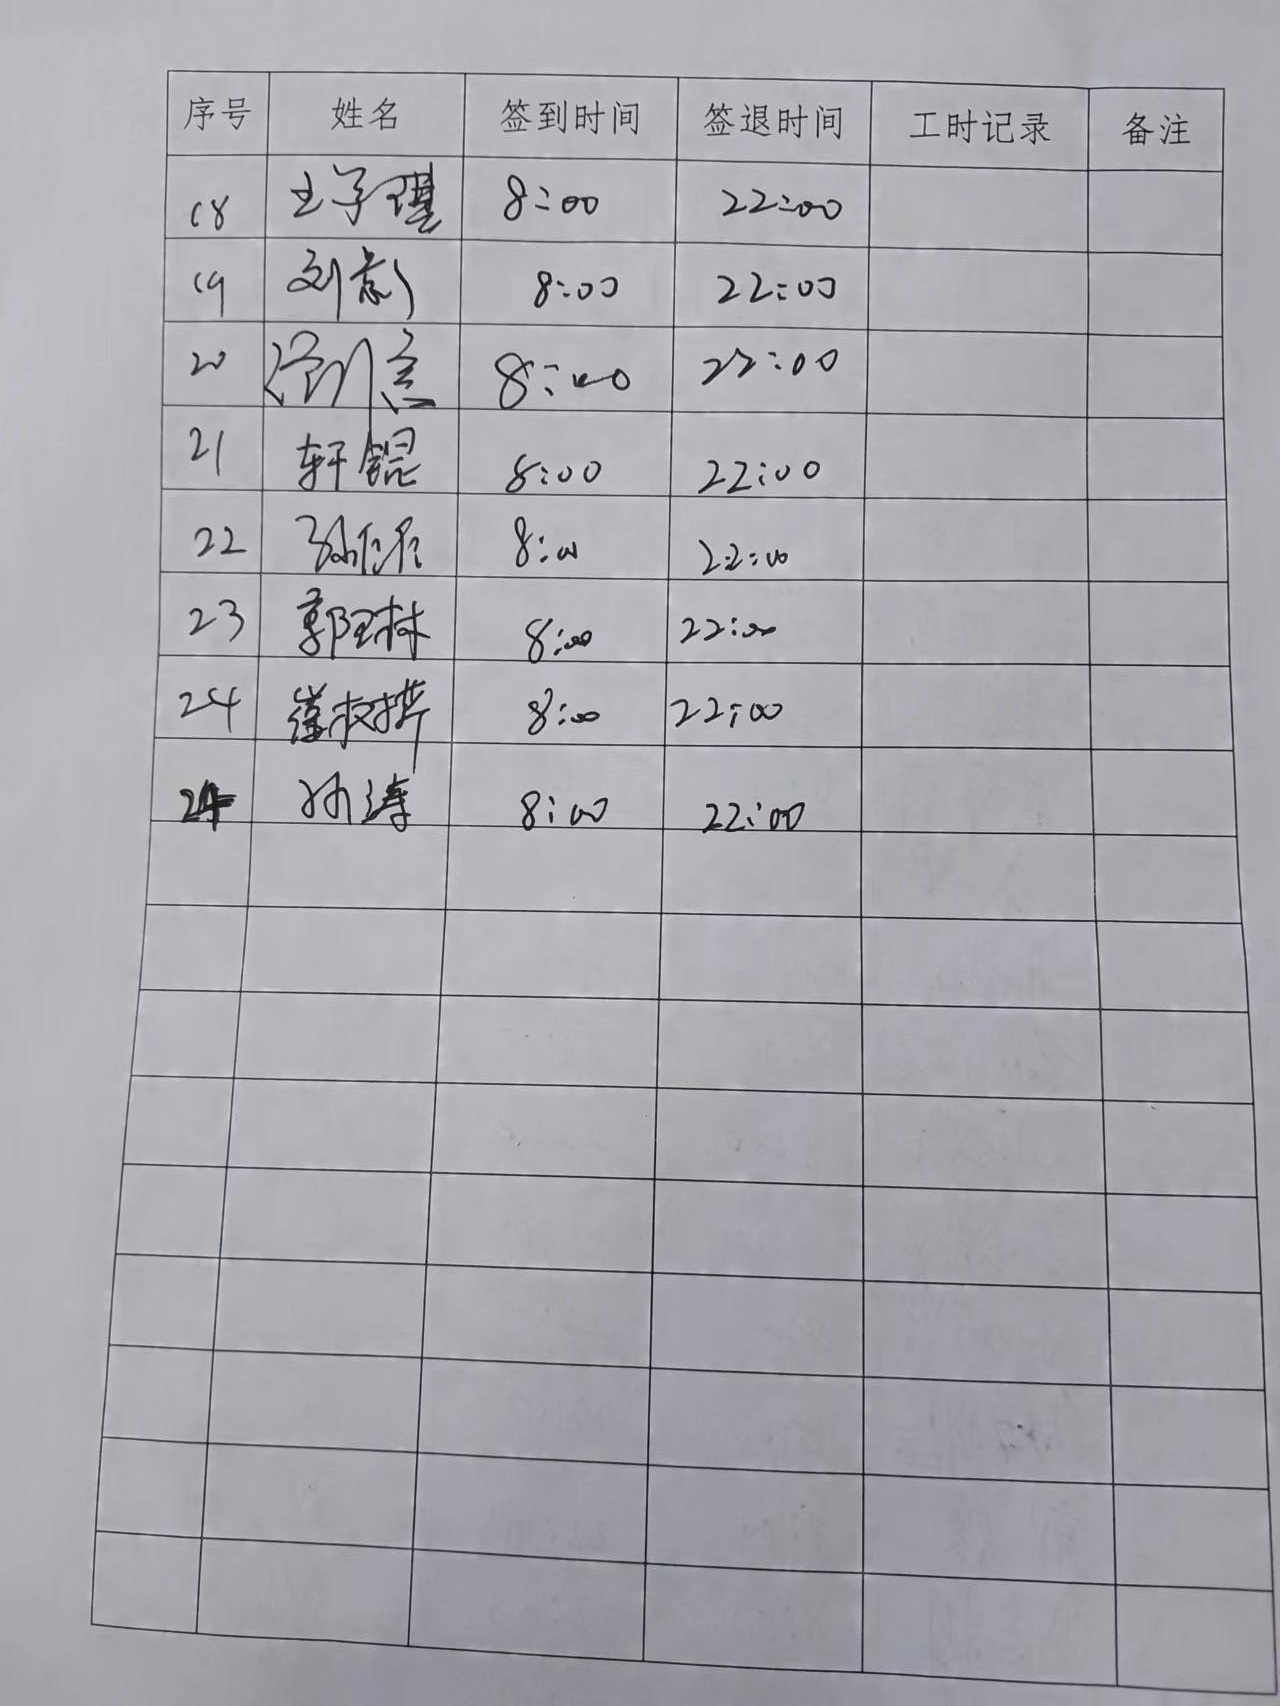 序号 姓名 签到时间 签退时间 工时记录 备注
18 王子琪 8:00 22:00
19 刘彪 8:00 22:00
20 8:00 22:00
21 轩锟 8:00 22:00
22 孙 8:00 22:00
23 郭玉林 8:00 22:00
24 8:00 22:00
24 孙涛 8:00 22:00